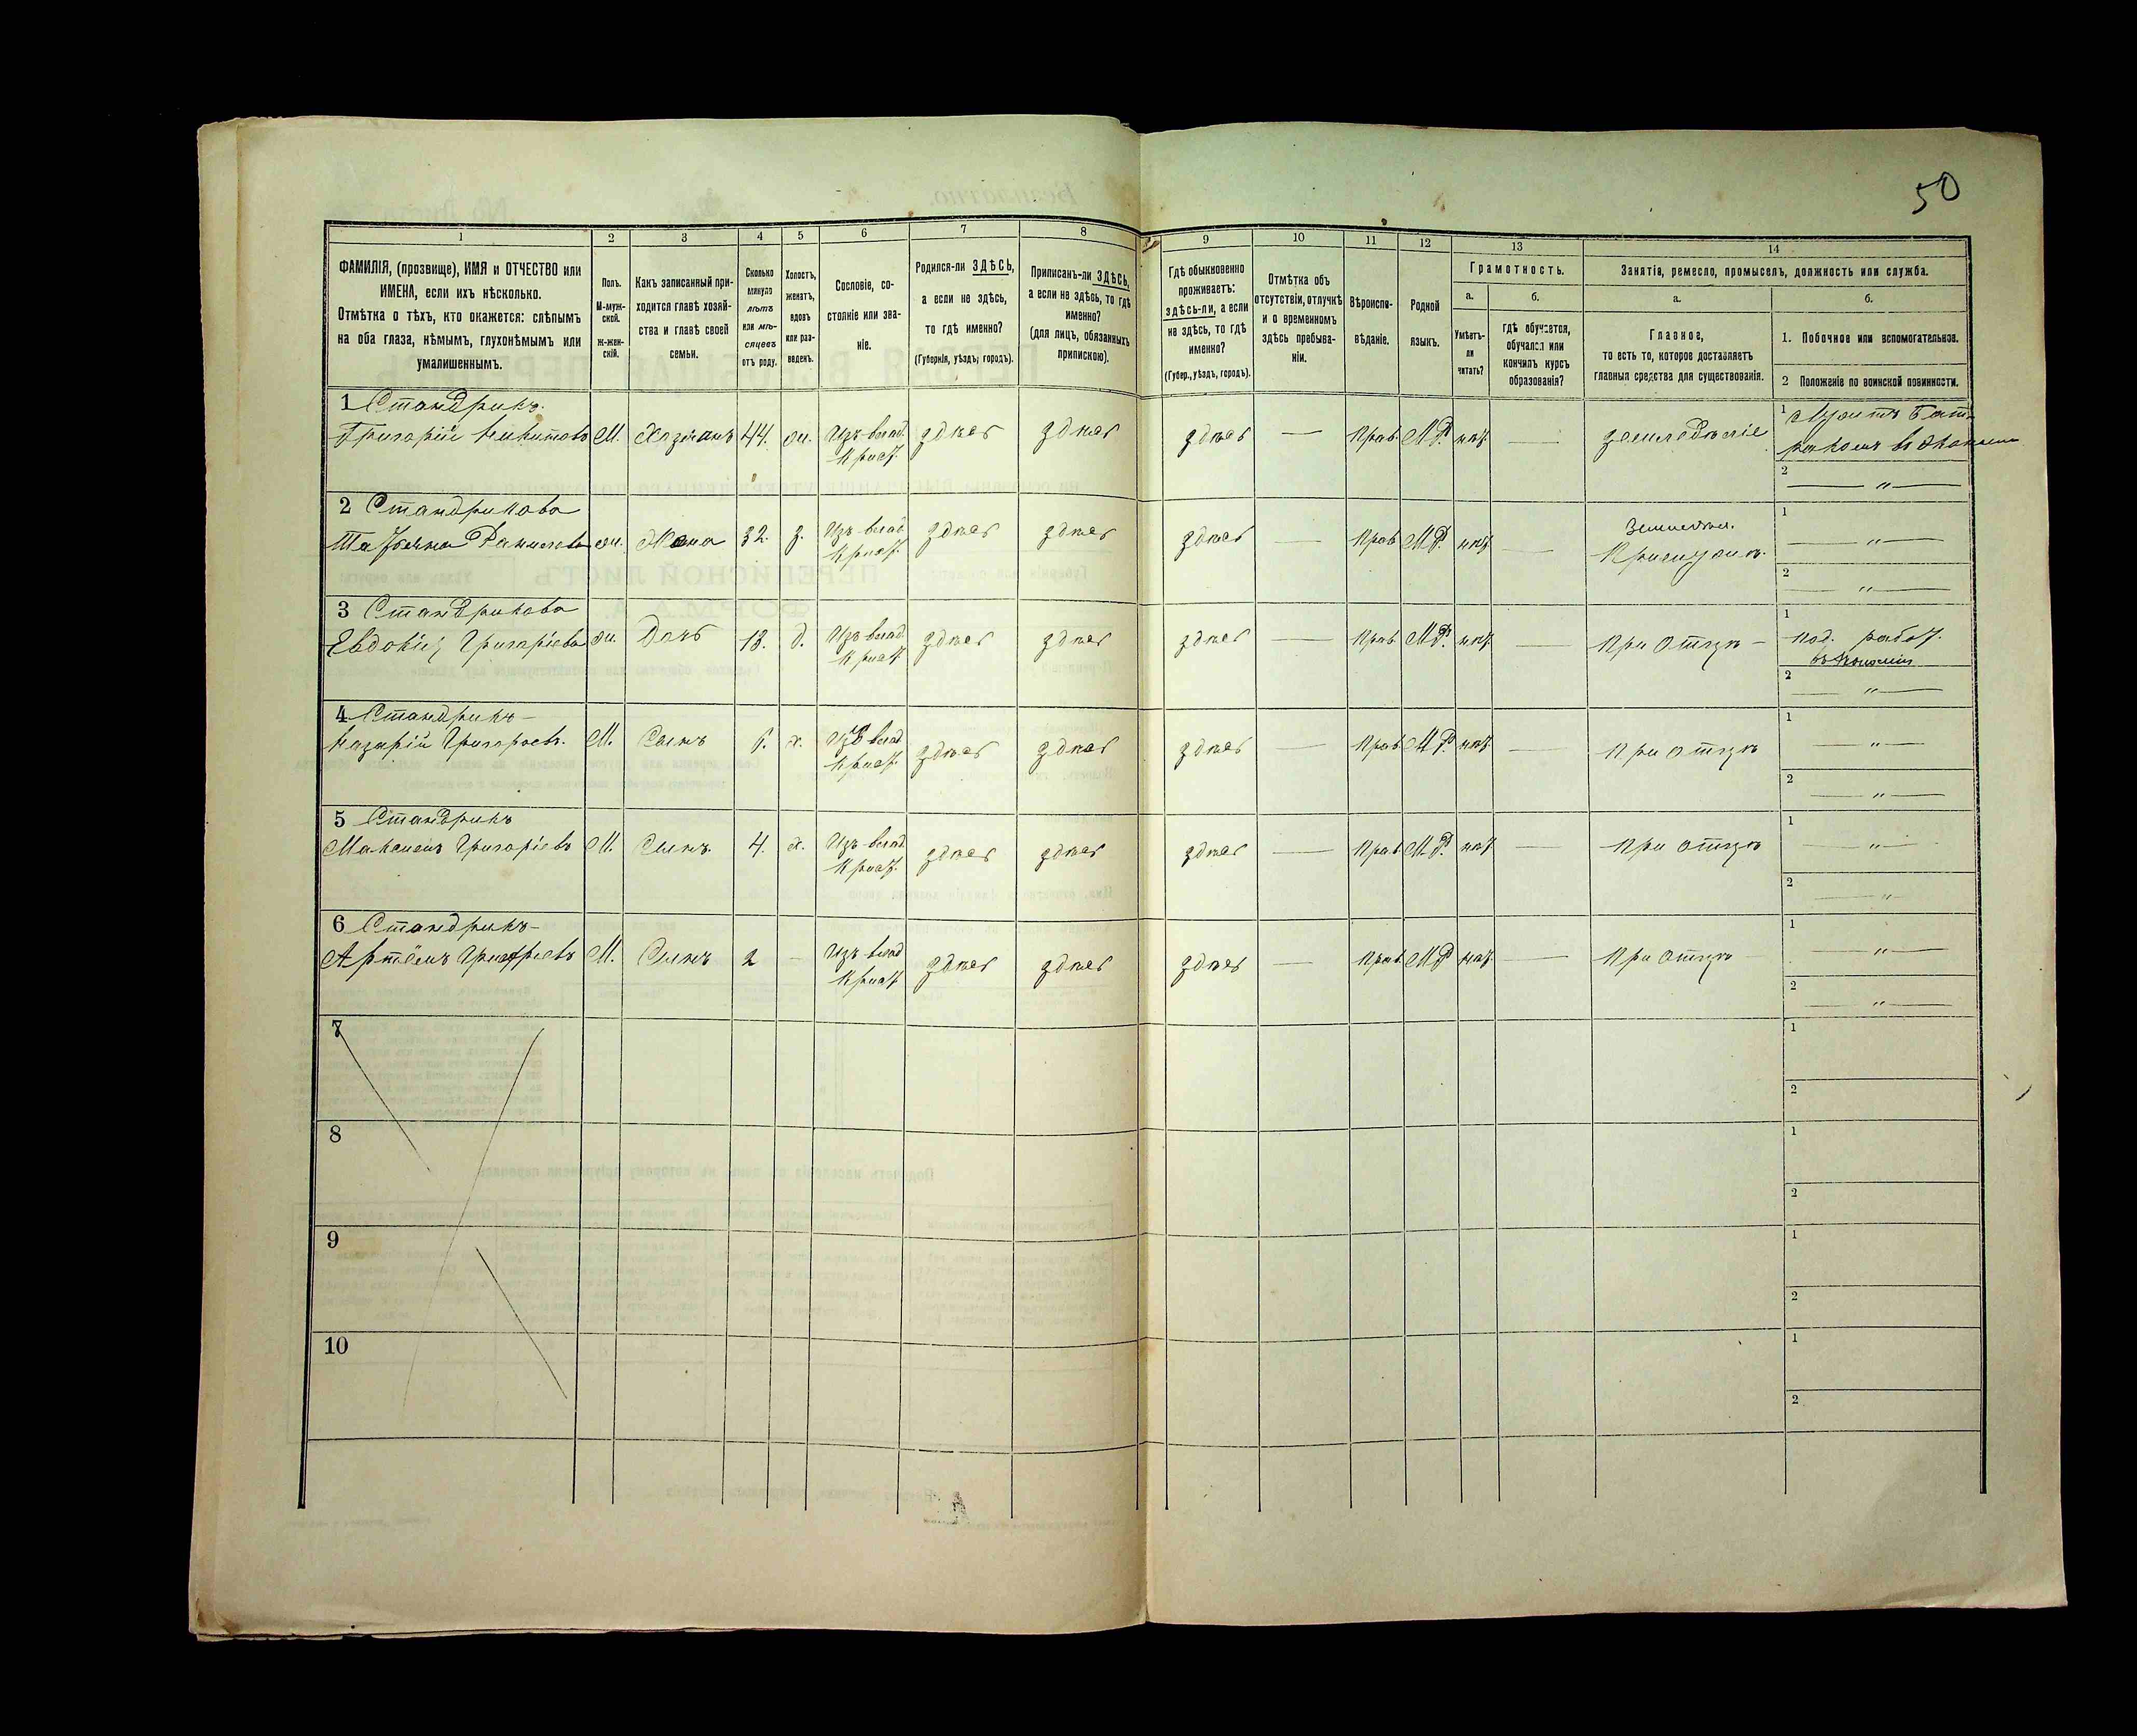 50
1 2 3 4 5 6 7 8 9 10 11 12 13 14
ФАМИЛІЯ, (прозвище), ИМЯ и ОТЧЕСТВО или
ИМЕНА, если ихъ нѣсколько.
Отмѣтка о тѣхъ, кто окажется: слѣпымъ
на оба глаза, нѣмымъ, глухонѣмымъ или
умалишеннымъ.
Полъ.
М-муж-
ской.
Ж-жен-
скій.
Какъ записанный при-
ходится главѣ хозяй-
ства и главѣ своей
семьи.
Сколько
минуло
лѣтъ
или мѣ-
сяцевъ
отъ роду.
Холостъ,
женатъ,
вдовъ
или раз-
веденъ.
Сословіе, со-
стояніе или зва-
ніе.
Родился-ли ЗДѢСЬ,
а если не здѣсь,
то гдѣ именно?
(Губернія, уѣздъ, городъ).
Приписанъ-ли ЗДѢСЬ,
а если не здѣсь, то гдѣ
именно?
(для лицъ, обязанныхъ
припискою).
Гдѣ обыкновенно
проживаетъ:
здѣсь-ли, а если
не здѣсь, то гдѣ
именно?
(Губер., уѣздъ, городъ).
Отмѣтка объ
отсутствіи, отлучкѣ
и о временномъ
здѣсь пребыва-
ніи.
Вѣроиспо-
вѣданіе.
Родной
языкъ.
Грамотность.
а.
Умѣетъ-
ли
читать?
б.
гдѣ обучается,
обучался или
кончилъ курсъ
образованія?
Занятія, ремесло, промыселъ, должность или служба.
а.
Главное,
то есть то, которое доставляетъ
главныя средства для существованія.
б.
1. Побочное или вспомогательное.
2 Положеніе по воинской повинности.
1 Стандрикъ
Григорій Никитовъ М. Хазяинъ 44. ж. Изъ-влад. крест. здѣсь здѣсь здѣсь — Прав. М.Р. нѣт — земледѣліе
1
2 — " —
2 Стандрикова
Даниловa ж. Жена 32. з. Изъ-влад. крест. здѣсь здѣсь здѣсь Прав. М.Р. нѣт — 
1 — " —
2 — " —
3 Стандрикова
Евдокія Григоріева ж. Дочь 13. д. Изъ-влад. крест. здѣсь здѣсь здѣсь — Прав. М.Р. нѣт — при отцѣ —
1 под. работ.
2 — " —
4 Стандрикъ —
Назарій Григорьевъ. М. Сынъ х. Изъ влад. крест. здѣсь здѣсь здѣсь — Прав. М.Р. нѣт — при отцѣ
1 — " —
2 — " —
5 Стандрикъ
Максимъ Григоріевъ М. Сынъ. 4. х. Изъ-влад. крест. здѣсь здѣсь здѣсь — Прав. М.Р. нѣт — при отцѣ
1 — " —
2 — " —
6 Стандрикъ —
Артёмъ Григоріевъ М. Сынъ 2 — Изъ-влад. крест. здѣсь здѣсь здѣсь — Прав. М.Р. нѣт — при отцѣ
1 — " —
2 — " —
7
1
2
8
1
2
9
1
2
10
1
2